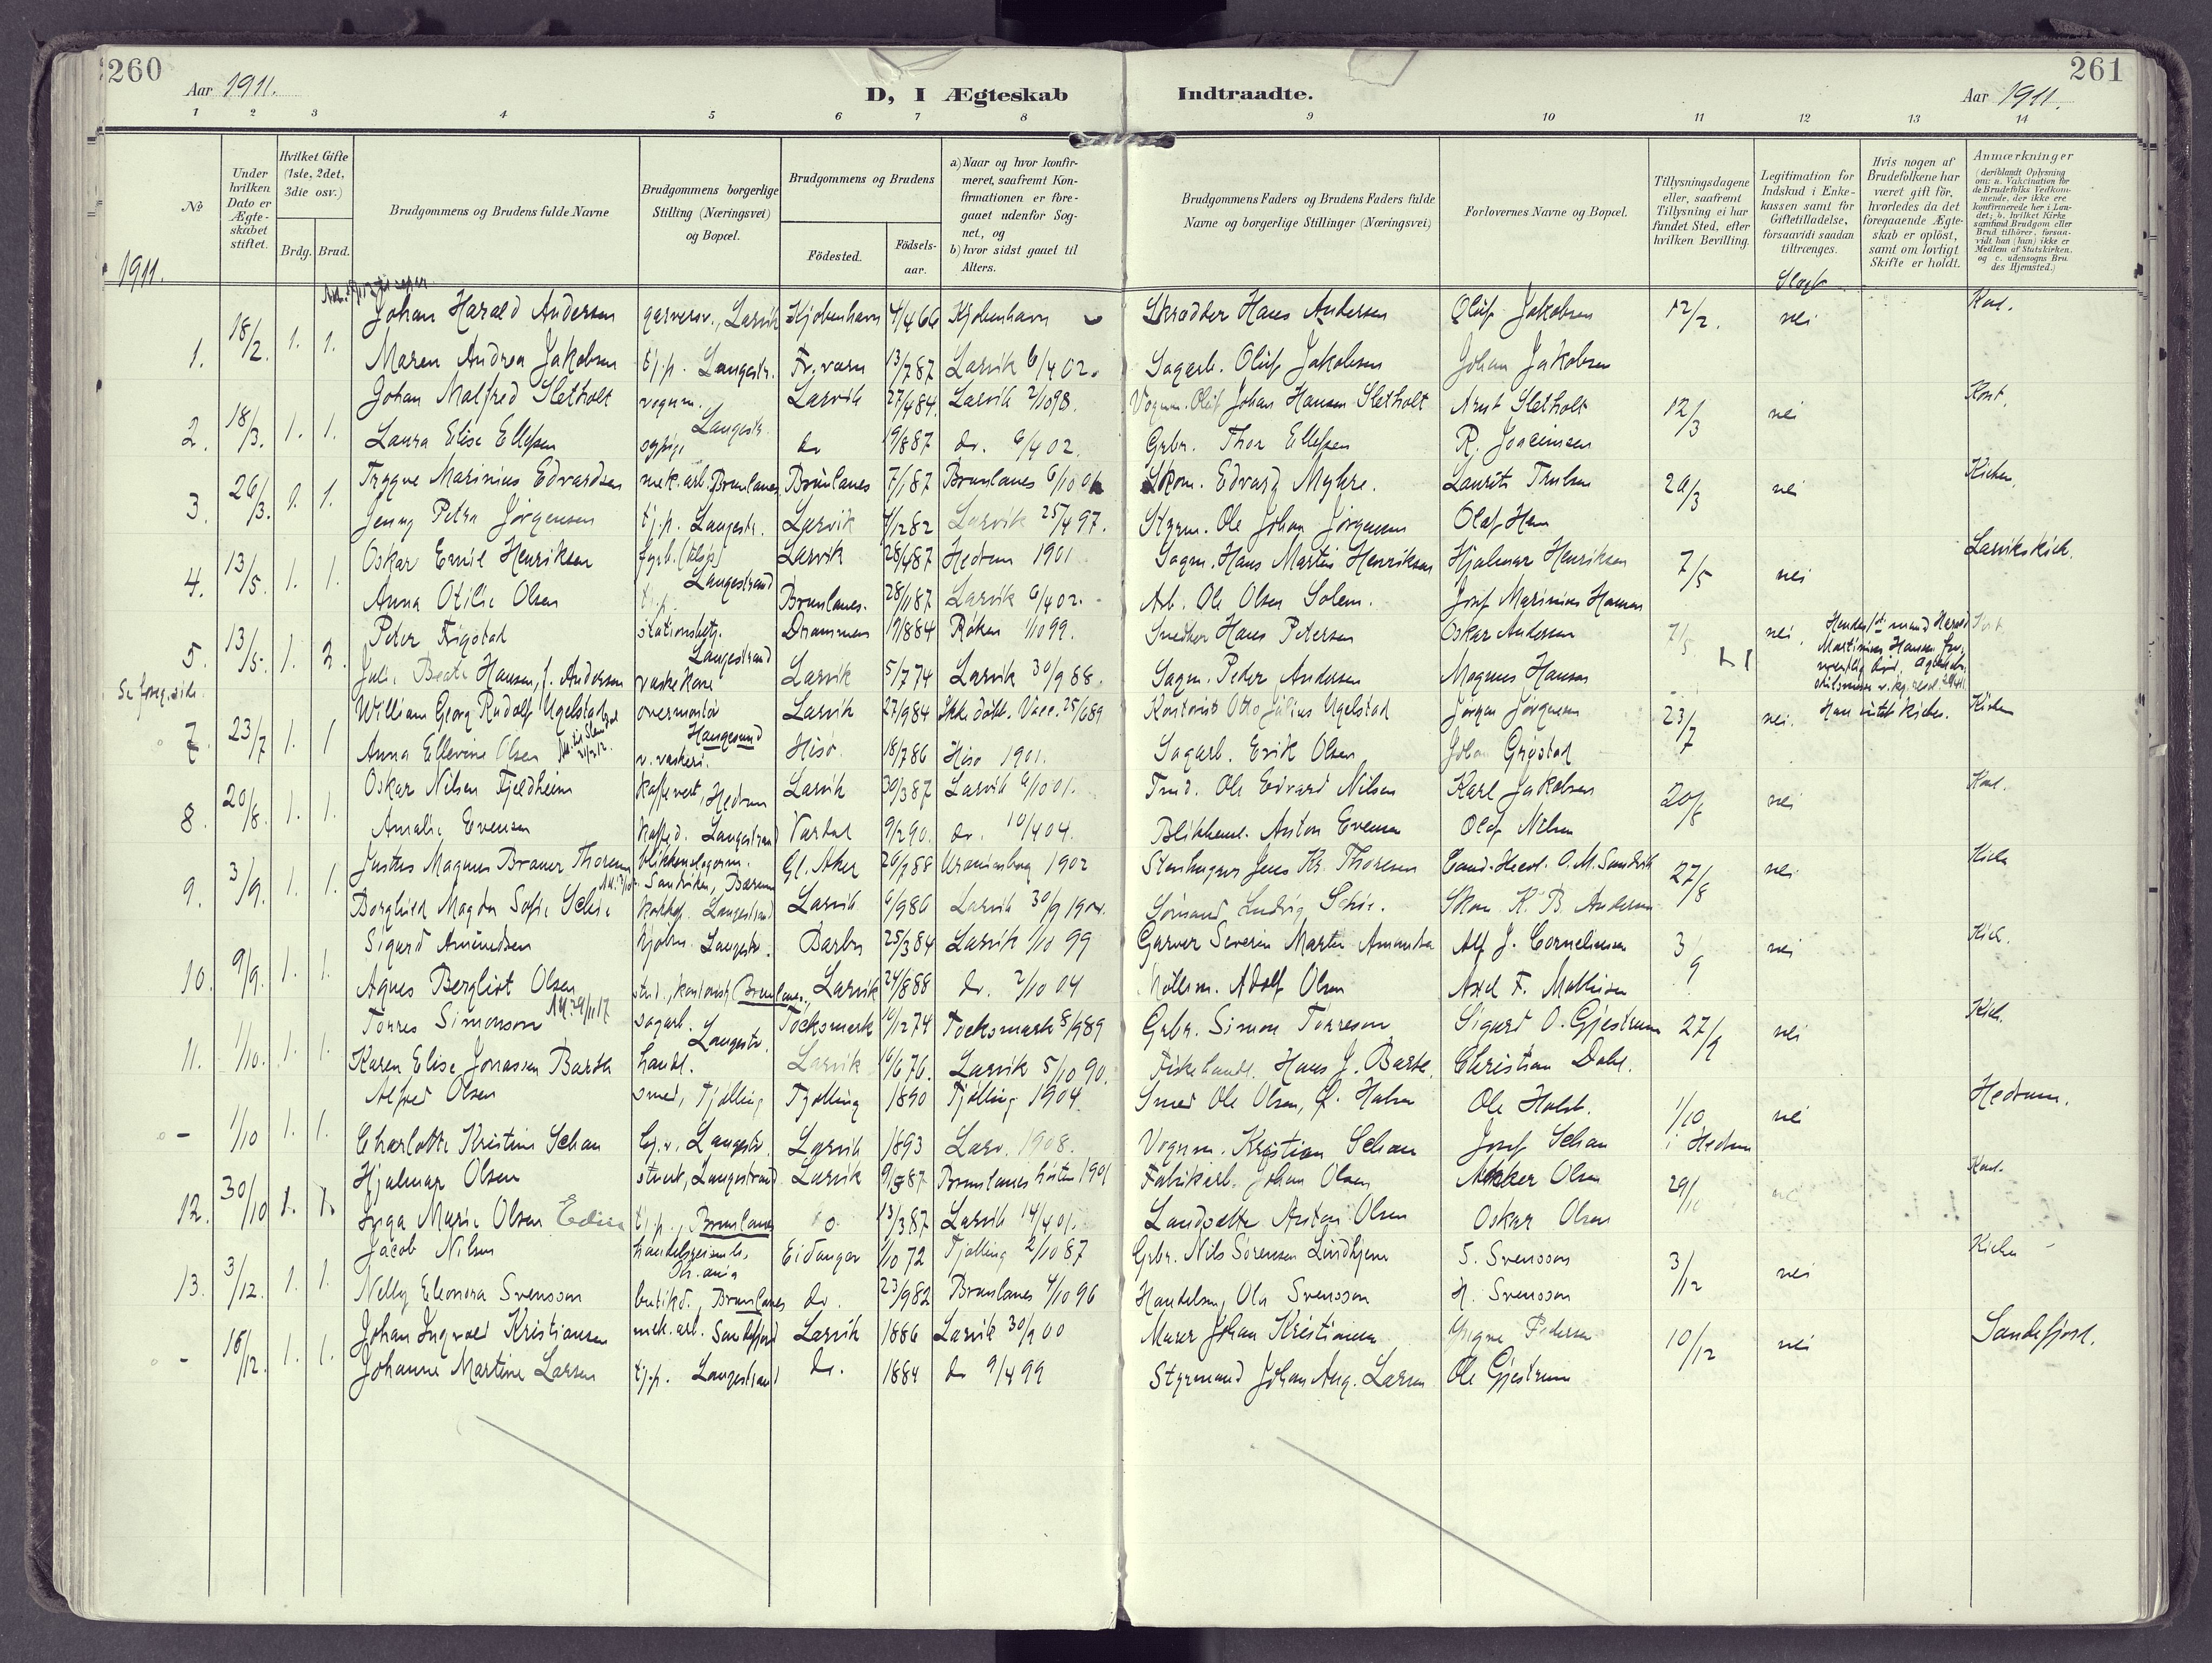 260
261
Aar 1911.
D, I Ægteskab Indtraadte.
Aar 1911.
1 2 3 4 5 6 7 8 9 10 11 12 13 14
№
Under hvilken Dato er Ægteskabet stiftet.
Hvilket Gifte (1ste, 2det, 3die osv.)
Brdg. Brud.
Brudgommens og Brudens fulde Navne
Brudgommens borgerlige Stilling (Næringsvei) og Bopæl.
Brudgommens og Brudens
Födested.
Födsels-aar.
a) Naar og hvor konfirmeret, saafremt Konfirmationen er foregaaet udenfor Sognet, og
b) hvor sidst gaaet til Alters.
Brudgommens Faders og Brudens Faders fulde Navne og borgerlige Stillinger (Næringsvei)
Forlovernes Navne og Bopæl.
Tillysningsdagene eller, saafremt Tillysning ei har fundet Sted, efter hvilken Bevilling.
Legitimation for Indskud i Enkekassen samt for Giftetilladelse, forsaavidt saadan tiltrænges.
Hvis nogen af Brudefolkene har været gift før, hvorledes da det foregaaende Ægteskab er oplöst, samt om lovligt Skifte er holdt.
Anmærkninger (deriblandt Oplysning om: a. Vakcination for de Brudefolks Vedkommende, der ikke ere konfirmerede her i Landet; b. hvilket Kirkesamfund Brudgom eller Brud tilhörer, forsaavidt han (hun) ikke er Medlem af Statskirken. og c. udensogns Brudes Hjemsted.)
1911.
1. 18/2. 1. 1. Johan Harald Andersen garversv., Larvik Kjøbenhavn 4/4 66 Kjøbenhavn Skrædder Hans Andersen Oluf Jakobsen 12/2. nei
Maren Andrea Jakobsen tj.p. Langestr. Fr.værn 13/7 87 Larvik 6/4 02. Sagarb. Oluf Jakobsen Johan Jakobsen
2. 18/3. 1. 1. Johan Malfred Sletholt vognm. Langestr. Larvik 27/4 84. Larvik 2/10 98. Vognm. Johan Hansen Sletholt Arnt Sletholt 12/3 nei
Laura Elise Ellefsen do 19/8 87 do. 6/4 02. Grbr. Thor Ellefsen R. Joacimsen
3. 26/3. 1. 1. Trygve Marinius Edvardsen mek. arb. Brunlanes Brunlanes 7/1 87 Brunlanes Skom. Edvard Myhre. Laurits Trulsen 20/3 nei Kirken.
Jenny Petra Jørgensen tj.p. Langestr. Larvik 4/12 82 Larvik 25/4 97. Styrm. Ole Johan Jørgensen Olaf Hem
4. 13/5. 1. 1. Oskar Emil Henriksen Langestrand Larvik 28/4 87 Hedrum 1901 Sagm. Hans Martin Henriksen Hjalmar Henriksen 7/5 nei Larvikskirk.
Anna Otilie Olsen tj.p. Brunlanes. 28/1 87 Larvik 6/4 02. Arb. Ole Olsen Solem. Josef Marinius Hansen
5. 13/5. 1. 2. Peter Frigstad stationsbetj. Langestrand Drammen 17/8 84 Røken 1/10 99. Snedker Hans Petersen Oskar Andersen 7/5 nei.
Julie Beate Hansen, f. Andersen vaskekone Larvik 5/7 74 Larvik 30/9 88. Sagm. Peder Andersen Magnus Hansen
Se foreg. side
7. 23/7 1. 1 William Georg Rudolf Ugelstad overmontør Haugesund Larvik 27/9 84 Ikke døbt. Vacc. 25/6 89 Kontorist Otto Julius Ugelstad Jørgen Jørgensen 23/7 nei. Kirken
Anna Ellevine Olsen v. vaskeri. Hisø 18/7 86 Hisø 1901. Sagarb. Erik Olsen
8. 20/8. 1. 1. Oskar Nilsen Fjeldheim kaffevert, Hedrum Larvik 30/3 87 Larvik 6/10 01. Ole Edvard Nilsen Karl Jakobsen 20/8 nei
Amalie Evensen Langestrand Vardal 9/2 90. do. 10/4 04. Blikkensl. Anton Evensen Olaf Nilsen
9. 3/9. 1. 1. Justus Magnus Brauer Thoresen blikkenslagerm. Sandviken, Bærum Gl. Aker 26/9 88 Uranienborg 1902 Stenhugger Jens Kr. Thoresen 27/8 nei
Borghild Magda Sofie Schie Langestrand Larvik 6/9 86 Larvik 30/9 1900. Sømand Ludvig Schie. Skom. K. B. Andersen
10. 9/9. 1. 1. Sigurd Amundsen kjøbm. Langestr. Barbu 25/3 84 Larvik 1/10 99 Garver Severin Martin Amundsen Alf J. Corneliusen 3/9 nei Kirk.
Agnes Bergliot Olsen Brunlanes. Larvik 24/8 88 do. 2/10 04 Møllerm. Adolf Olsen Axel F. Mathisen
11. 1/10. 1. 1. Torres Simonson sagarb. Langestr. Tocksmark 10/12 74 Tocksmark 8/9 89 Grbr. Simon Torreson Sigurd O. Gjestrum 27/9 nei Kirk.
Karen Elise Jonassen Barth handl. Larvik 16/6 76. Larvik 5/10 90. Fiskehandl. Hans J. Barth. Christian Dahl.
– 1/10 1. 1. Alfred Olsen smed, Tjølling Tjølling 1890 Tjølling 1904. Smed Ole Olsen, Ole Holst. 1/10 i Hedrum nei Hedrum.
Charlotte Kristine Schau Langestr. Larvik 1893 Larv. 1908. Vognm. Kristian Schau Josef Schau
12. 30/10 1. 1. Hjalmar Olsen Langestrand Larvik 9/5 87 Brunlanes høsten 1901 Fabrikarb. Johan Olsen Olsen 29/10
Inga Marie Olsen tj.p., Brunlanes do 13/3 87 Larvik 14/4 01. Anton Olsen Oskar Olsen
13. 3/12. 1. 1. Jacob Nilsen Eidanger 1/10 72 Tjølling 2/10 87 Grbr. Nils Sørensen Lindhjem S. Svensson 3/12 nei
Nelly Eleonora Svensson butikd., Brunlanes do. 23/9 82 Brunlanes 4/10 96 Handelsm. Ola Svensson H. Svensson
– 16/12. 1. 1. Johan Ingvald Kristiansen mek. arb. Sandefjord Larvik 1886 Larvik 30/9 00 Murer Johan Kristiansen Pedersen 10/12 nei Sandefjord.
Johanne Martine Larsen tj.p. Langestrand do. 1884 do 9/4 99 Styrmand Johan Aug. Larsen Ole Gjestrum